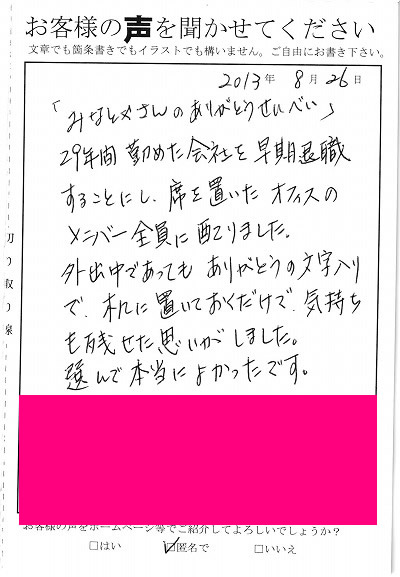 お客様の声を聞かせてください
文章でも箇条書きでもイラストでも構いません。ご自由にお書き下さい。
2013年 8月26日
「みなとやさんのありがとうせんべい」
29年間 勤めた会社を早期退職
することにし、席を置いた オフィスの
メンバー全員に配りました。
外出中であっても ありがとうの文字入り
で、机に置いておくだけで、気持ち
も残せた思いがしました。
選んで本当によかったです。
切り取り線
お客様の声をホームページ等でご紹介してよろしいでしょうか？
□はい ☑匿名で □いいえ